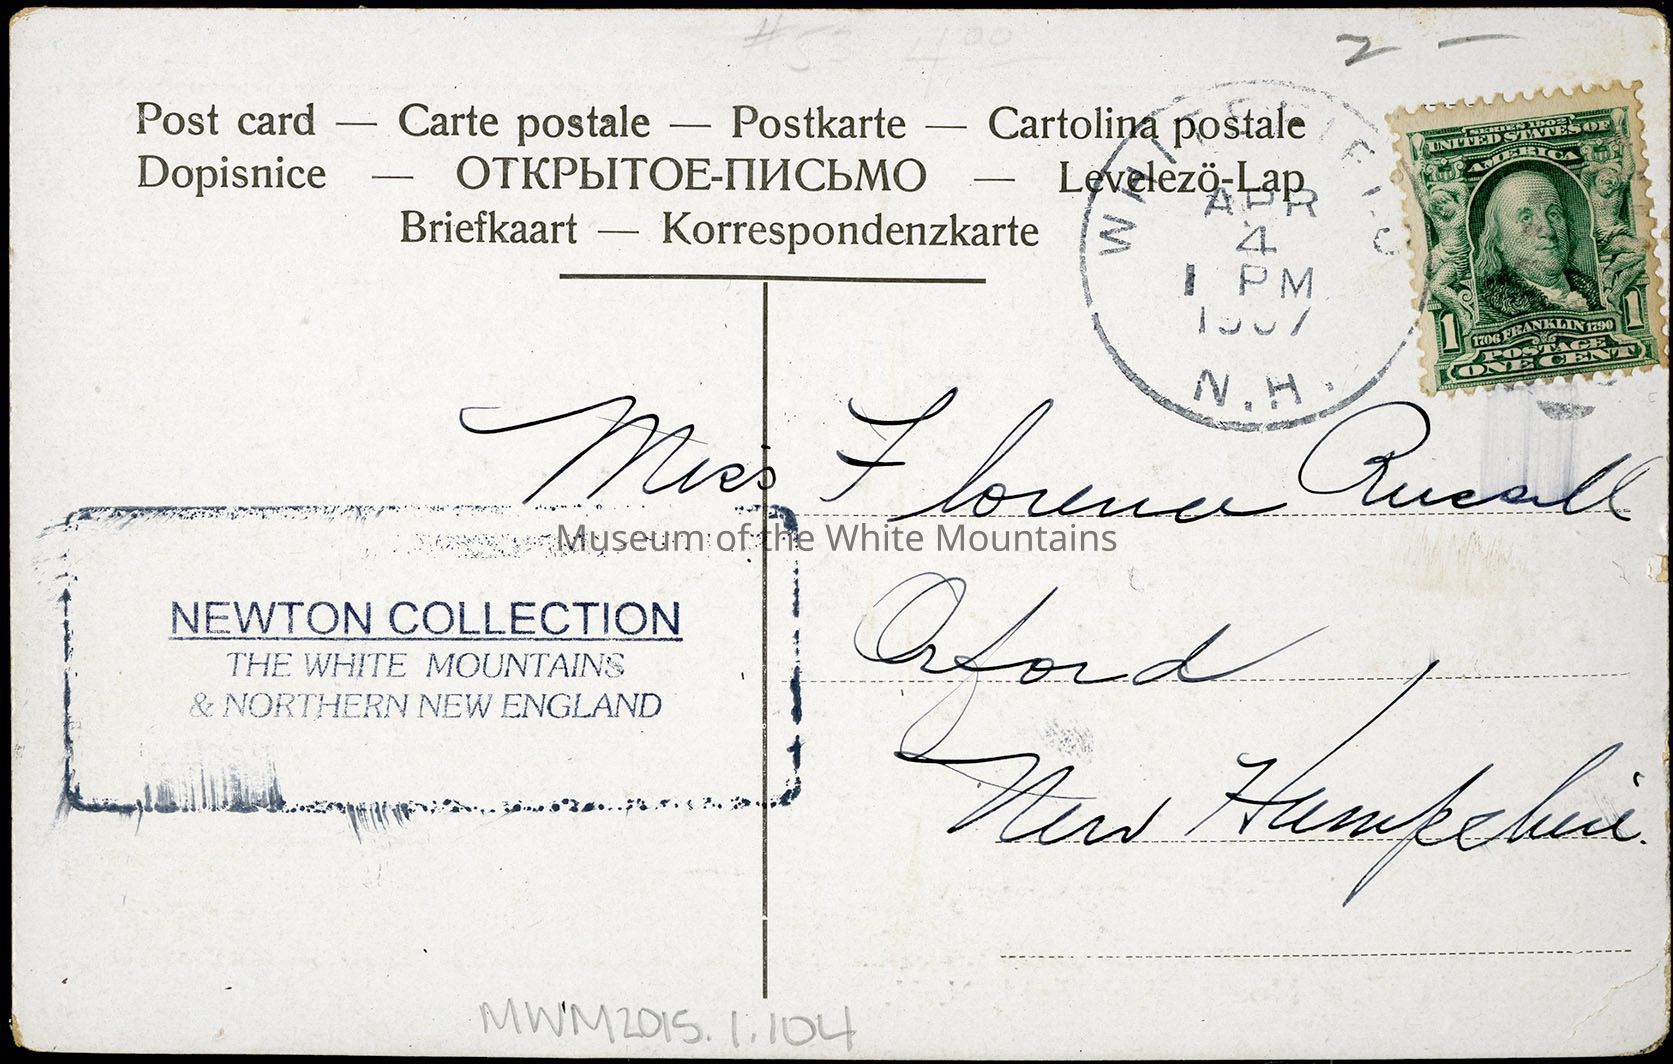 #53 4.00
2 —
Post card — Carte postale — Postkarte — Cartolina postale
Dopisnice — ОТКРЫТОЕ-ПИСЬМО — Levelezö-Lap
Briefkaart — Korrespondenzkarte
WHITEFIELD
APR
4
1 PM
1907
N.H.
SERIES 1902
UNITED STATES OF
AMERICA
1 1
1706 FRANKLIN 1790
POSTAGE
ONE CENT
Miss Florence Russell
Orford
New Hampshire.
Museum of the White Mountains
NEWTON COLLECTION
THE WHITE MOUNTAINS
& NORTHERN NEW ENGLAND
MWM2015.1.104